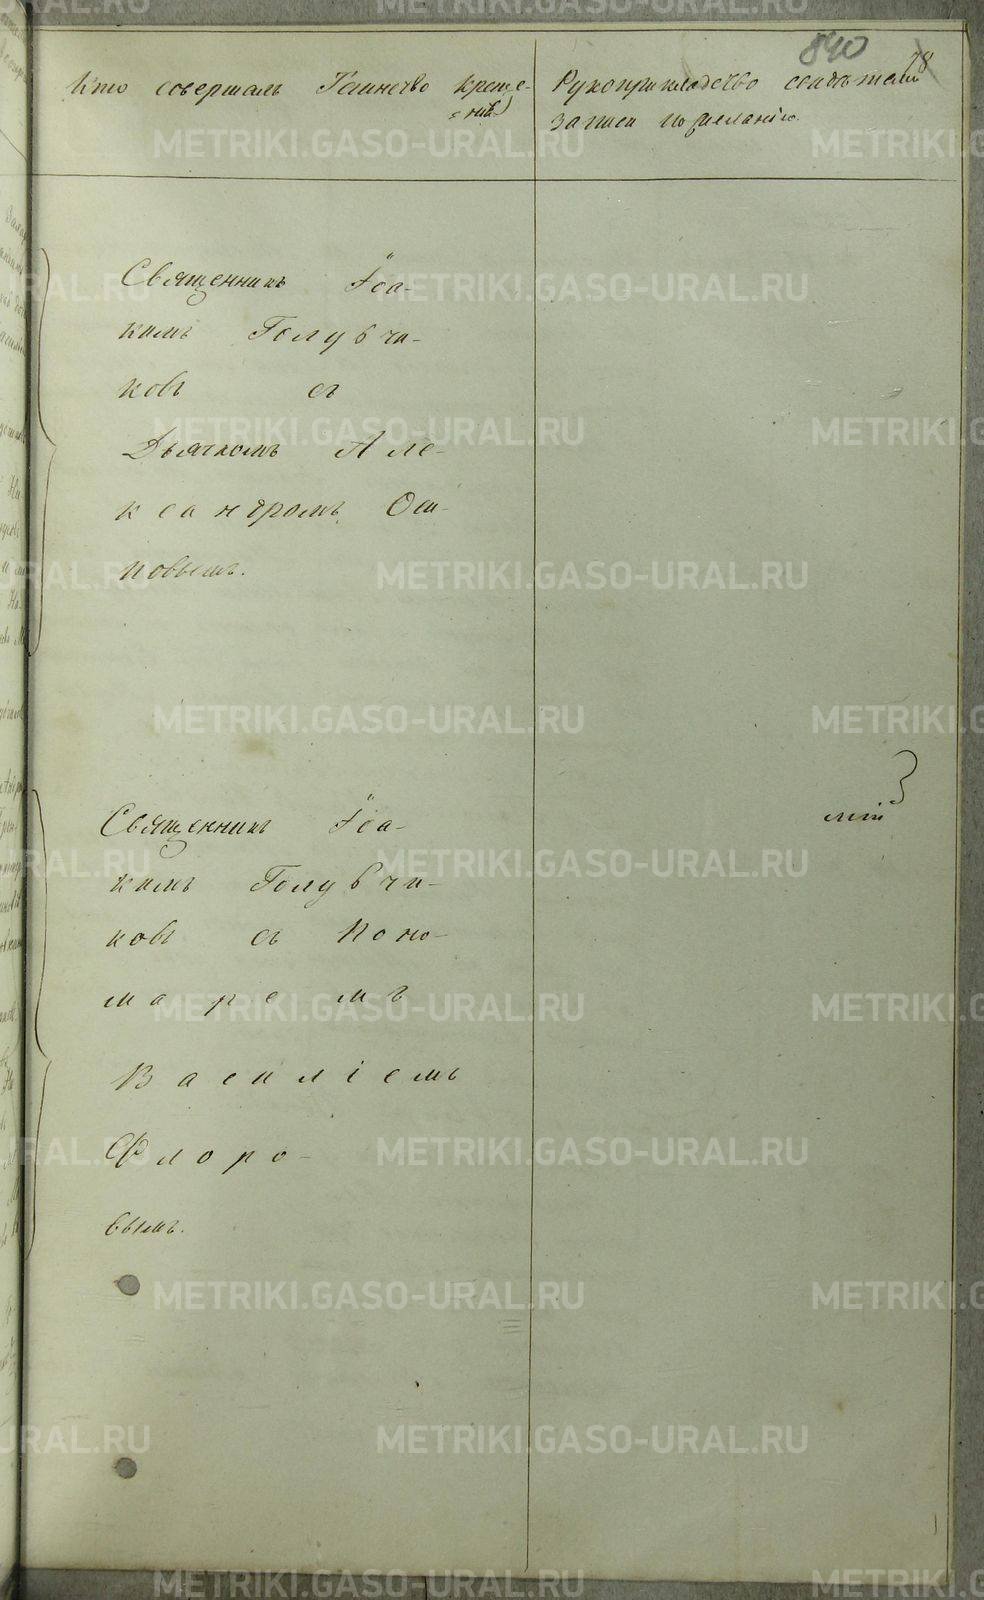 840
78
Кто совершалъ Таинство креще-
нiя
Рукоприкладство свидѣтелей
записи по желанiю.
Священникъ Iоа-
кимъ Голубчи-
ковъ съ
Дьячкомъ Але-
ксандромъ Оси-
повымъ.
Священникъ Iоа-
кимъ Голубчи-
ковъ съ Поно-
маремъ
Василiемъ
Флоро-
вымъ.
METRIKI.GASO-URAL.RU